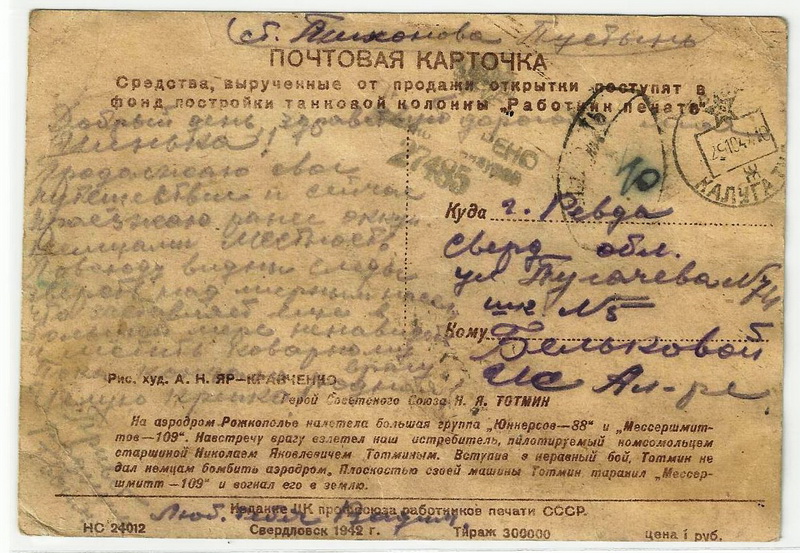 ст. Тихонова Пустынь
ПОЧТОВАЯ КАРТОЧКА
Средства, вырученные от продажи открытки поступят в
фонд постройки танковой колонны „Работник печати"
Добрый день здравствуй дорогая
Шенька!
Продолжаю свое
путешествие и сейчас
проезжаю ранее окку
немцами местность
Повсюду видны следы
зверств над мирным насел
что заставляет еще в
большей мере ненавид
коварному
врагу
крепко
ЕНО
27485
10
КАЛУГА
Куда г. Ревда
Сверд обл.
ул Пугачева N74
шк N5
Кому Бельковой
Ал-ре
Рис. худ. А. Н. ЯР—КРАВЧЕНКО
Герой Советского Союза Н. Я. ТОТМИН
На аэродром Рожкополье налетела большая группа „Юнкерсов—88" и „Мессершмит-
тов—109". Навстречу врагу взлетел наш истребитель, пилотируемый комсомольцем
старшиной Николаем Яковлевичем Тотминым. Вступив в неравный бой, Тотмин не
дал немцам бомбить аэродром. Плоскостью своей машины Тотмин таранил „Мессер-
шмитт—109" и вогнал его в землю.
Издание ЦК профсоюза работников печати СССР.
Люб. тебя Вадим
НС 24012 Свердловск 1942 г. Тираж 300000 цена 1 руб.